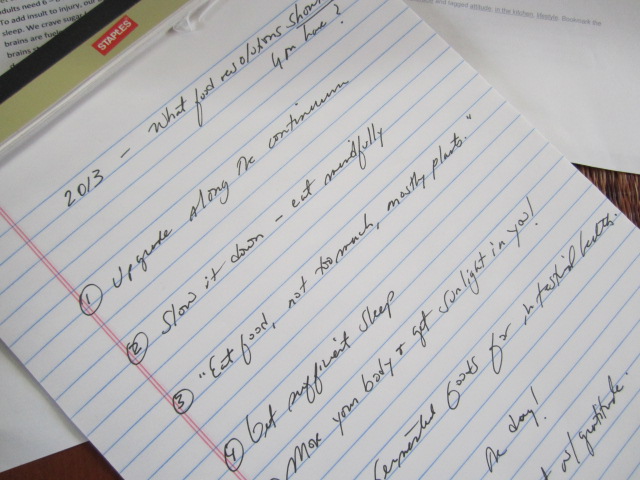 dults need 6-
To add insult to injury, our
sleep. We crave sugar
brains are
brains
STAPLES
and tagged attitude, in the kitchen, lifestyle. Bookmark the
2013 - What food resolutions should
you have?
① Upgrade along the continuum
② Slow it down - eat mindfully
③ "Eat food, not too much, mostly plants."
④ Get sufficient sleep
Move your body & get sunlight in you!
fermented foods for intestinal health.
the day!
w/ gratitude.